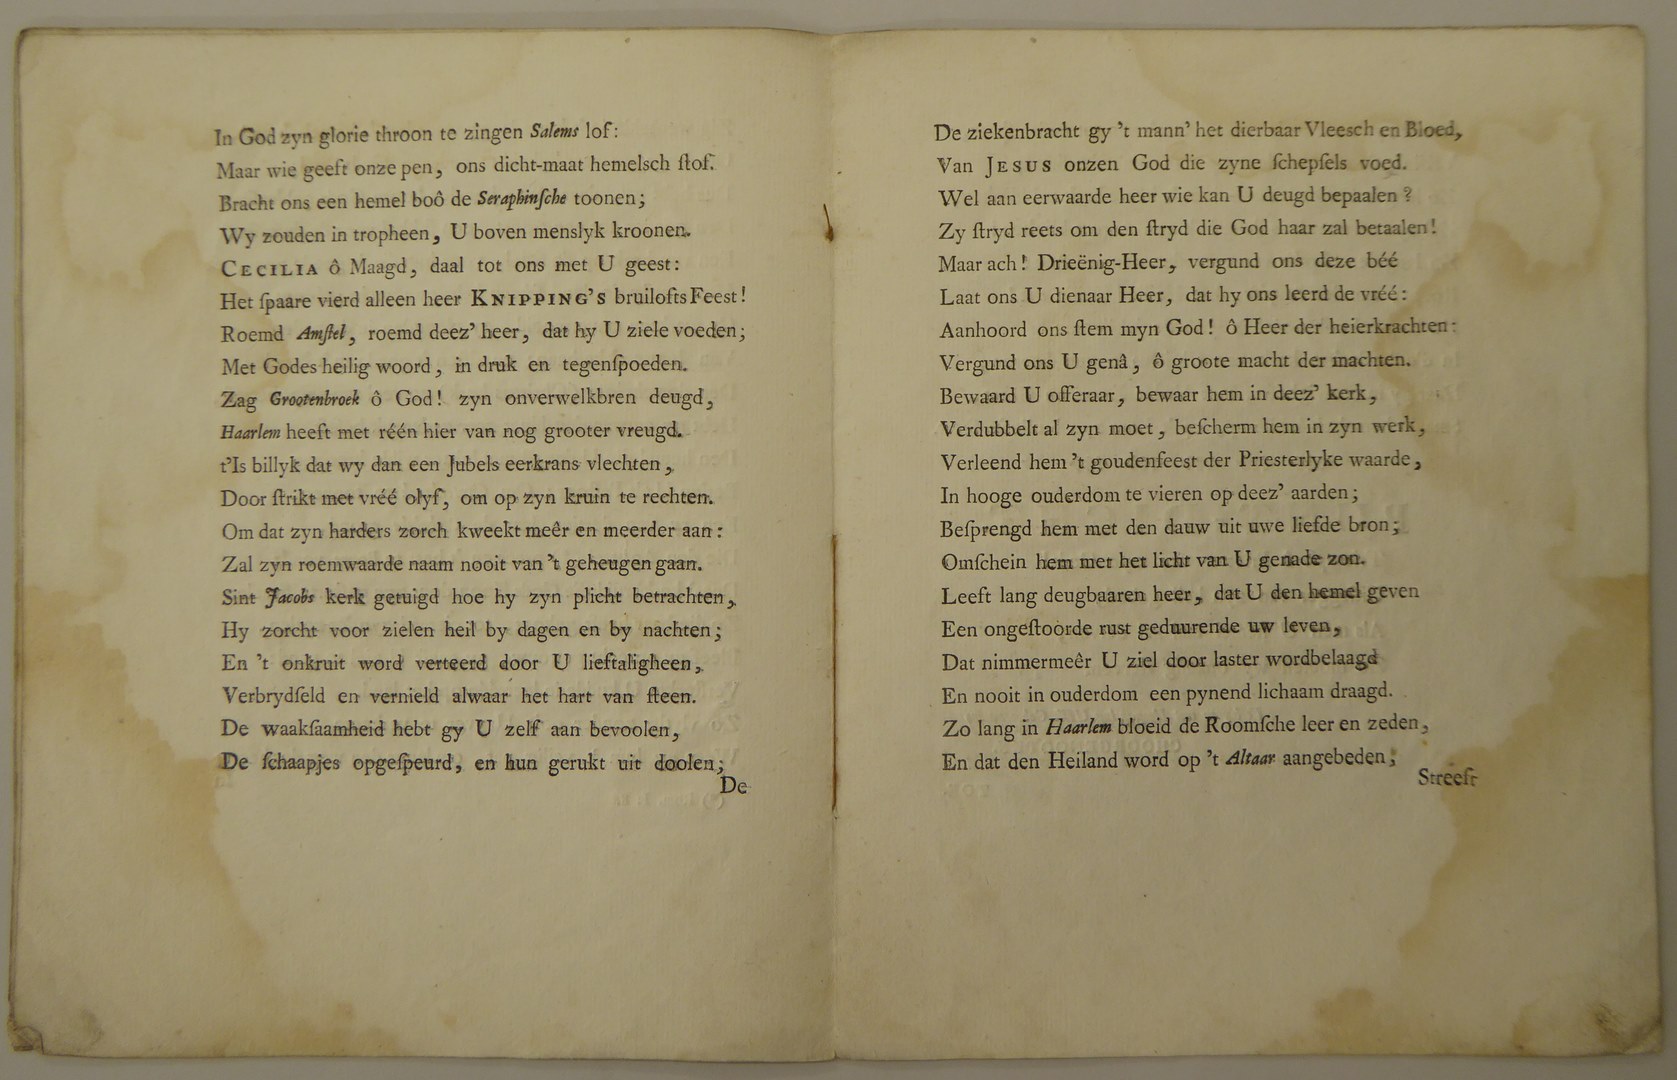 In God zyn glorie throon te zingen Salems lof:
Maar wie geeft onze pen, ons dicht-maat hemelsch ſtof.
Bracht ons een hemel boô de Seraphinſche toonen;
Wy zouden in tropheen, U boven menslyk kroonen.
CECILIA ô Maagd, daal tot ons met U geest:
Het ſpaare vierd alleen heer KNIPPING'S bruilofts Feest!
Roemd Amſtel, roemd deez' heer, dat hy U ziele voeden;
Met Godes heilig woord, in druk en tegenſpoeden.
Zag Grootenbroek ô God! zyn onverwelkbren deugd,
Haarlem heeft met réén hier van nog grooter vreugd.
t'Is billyk dat wy dan een Jubels eerkrans vlechten,
Door ſtrikt met vréé olyf, om op zyn kruin te rechten.
Om dat zyn harders zorch kweekt meêr en meerder aan:
Zal zyn roemwaarde naam nooit van 't geheugen gaan.
Sint Jacobs kerk getuigd hoe hy zyn plicht betrachten,
Hy zorcht voor zielen heil by dagen en by nachten;
En 't onkruit word verteerd door U lieftaligheen,
Verbrydſeld en vernield alwaar het hart van ſteen.
De waakſaamheid hebt gy U zelf aan bevoolen,
De ſchaapjes opgeſpeurd, en hun gerukt uit doolen;
De
De ziekenbracht gy 't mann' het dierbaar Vleesch en Bloed,
Van JESUS onzen God die zyne ſchepſels voed.
Wel aan eerwaarde heer wie kan U deugd bepaalen?
Zy ſtryd reets om den ſtryd die God haar zal betaalen!
Maar ach! Drieënig-Heer, vergund ons deze béé
Laat ons U dienaar Heer, dat hy ons leerd de vréé:
Aanhoord ons ſtem myn God! ô Heer der heierkrachten:
Vergund ons U genâ, ô groote macht der machten.
Bewaard U offeraar, bewaar hem in deez' kerk,
Verdubbelt al zyn moet, beſcherm hem in zyn werk,
Verleend hem 't goudenfeest der Priesterlyke waarde,
In hooge ouderdom te vieren op deez' aarden;
Beſprengd hem met den dauw uit uwe liefde bron;
Omſchein hem met het licht van U genade zon.
Leeft lang deugbaaren heer, dat U den hemel geven
Een ongeſtoorde rust geduurende uw leven,
Dat nimmermeêr U ziel door laster wordbelaagd
En nooit in ouderdom een pynend lichaam draagd.
Zo lang in Haarlem bloeid de Roomſche leer en zeden,
En dat den Heiland word op 't Altaar aangebeden;
Streeft